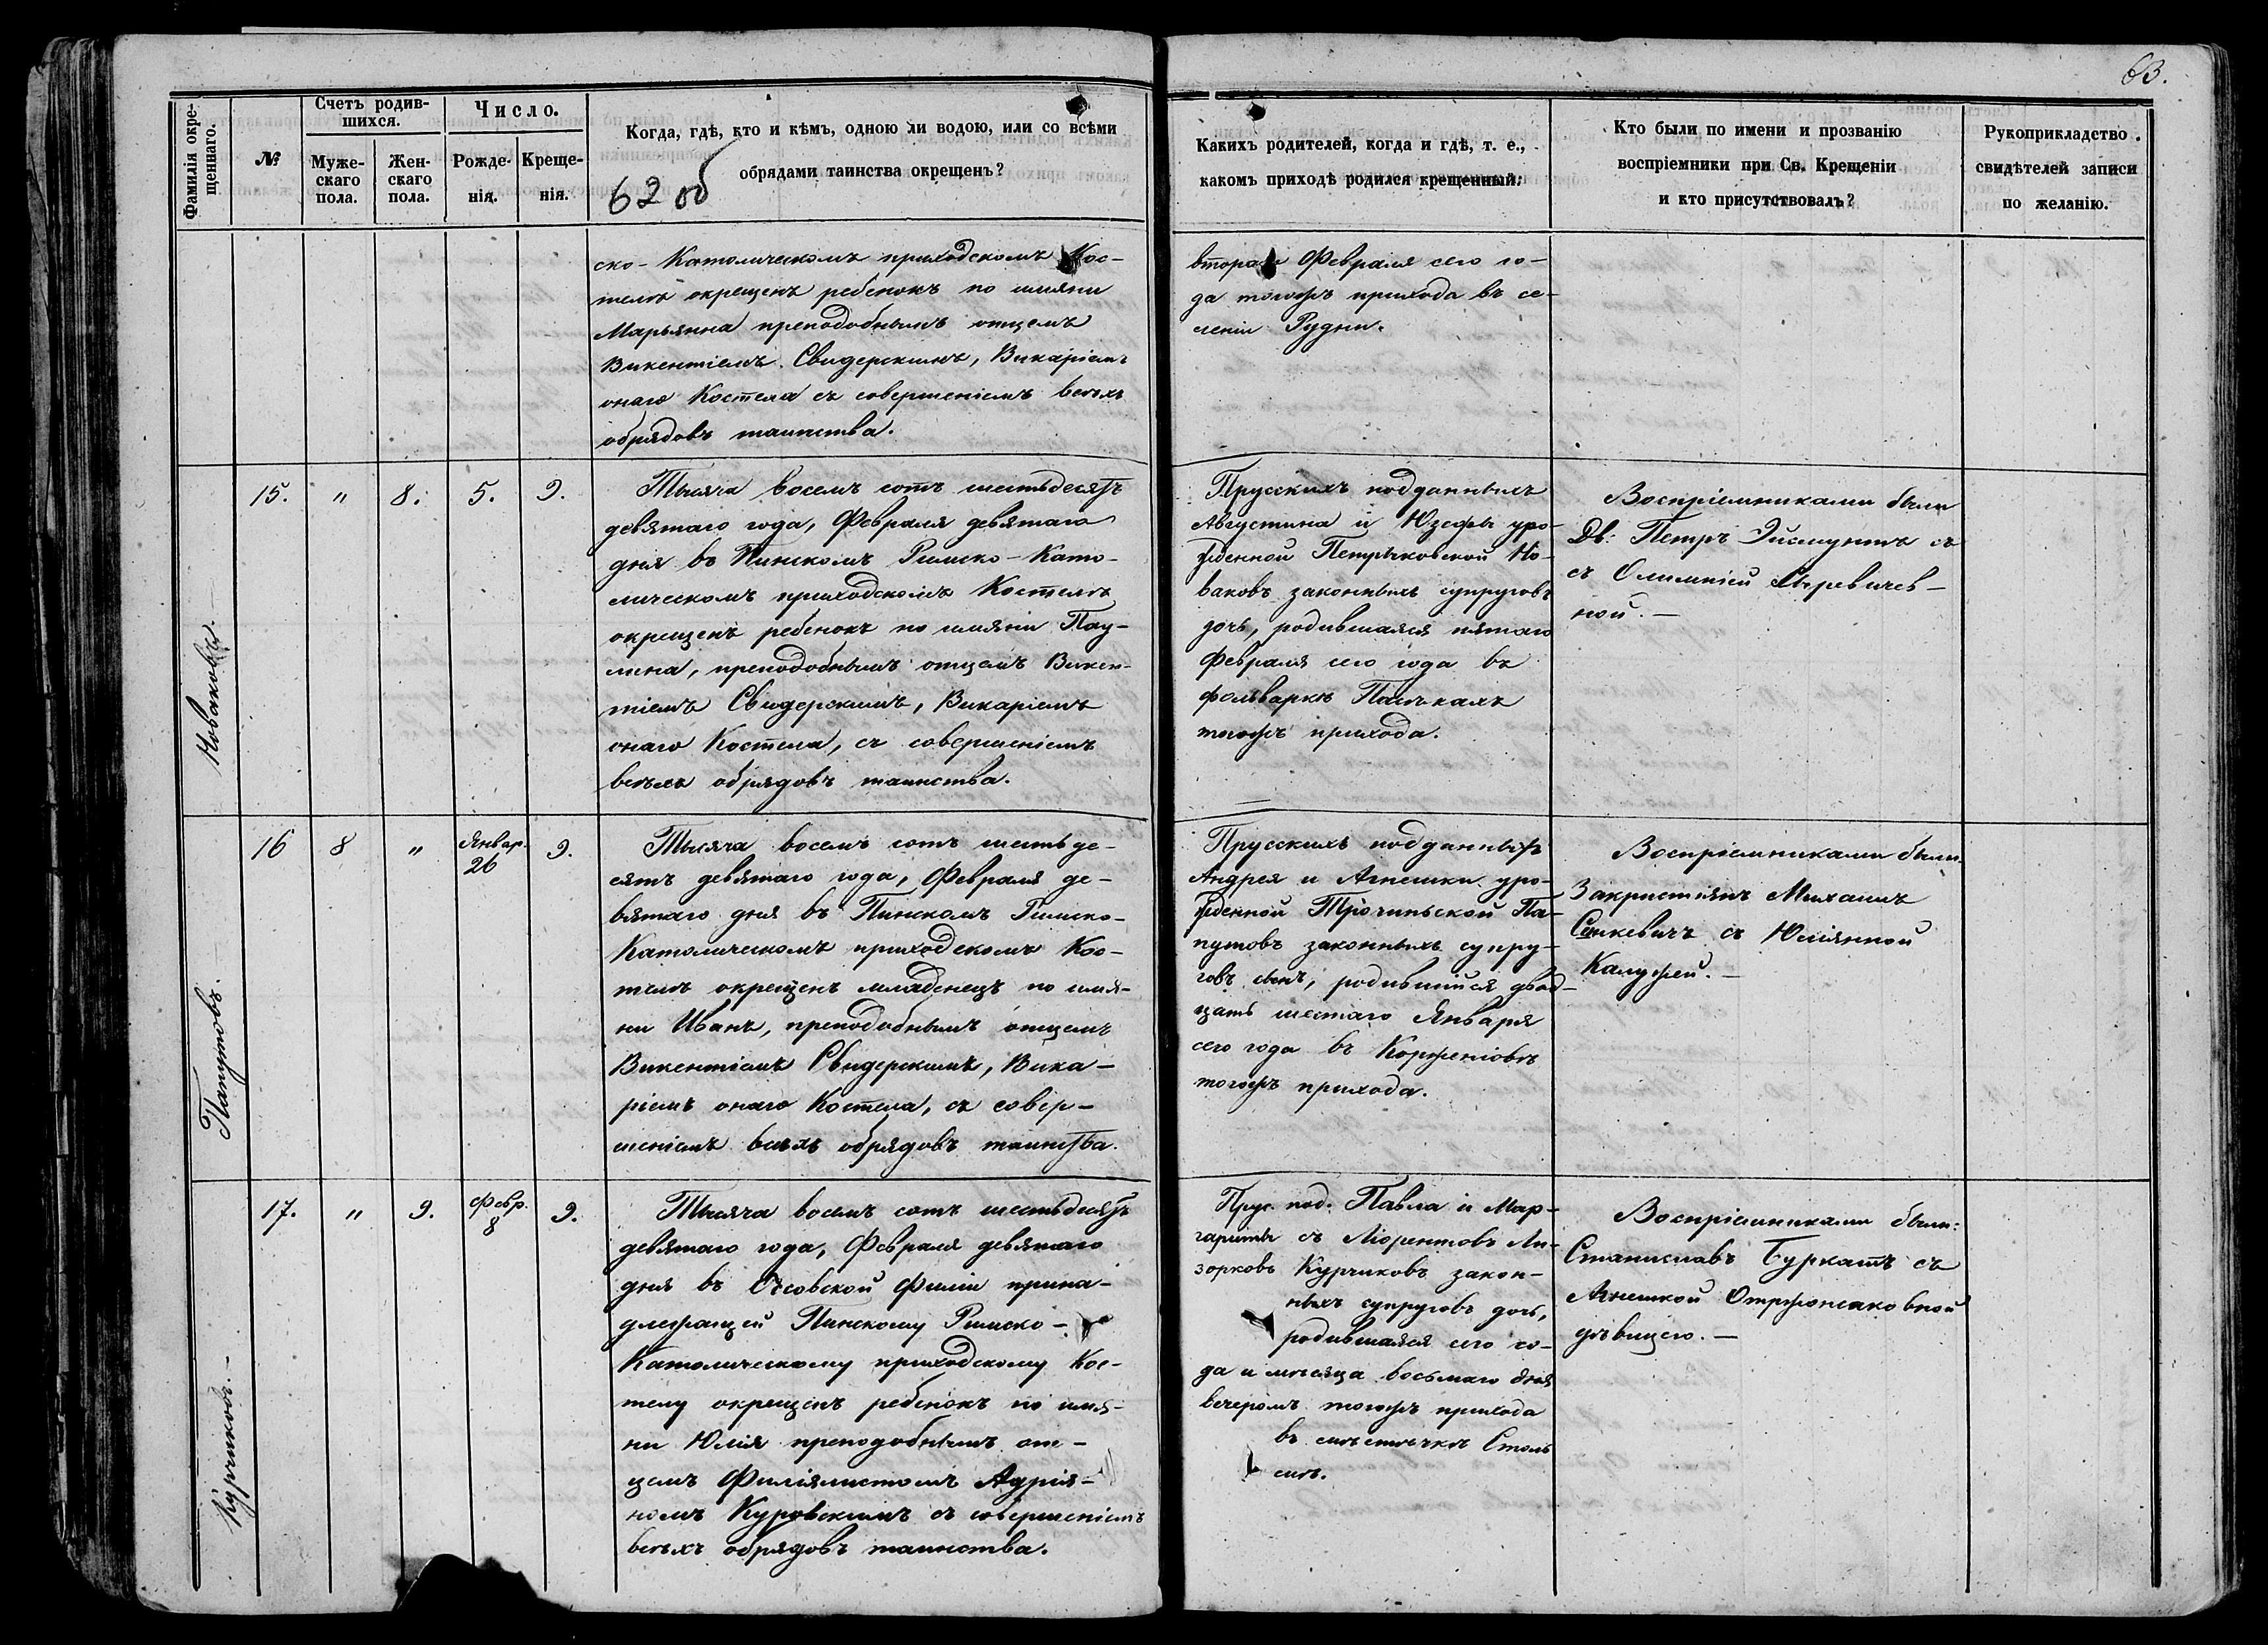 63.
Фамилія окре-
щеннаго.
№
Счетъ родив-
шихся.
Муже-
скаго
пола.
Жен-
скаго
пола.
Число.
Рожде-
нія.
Креще-
нія.
Когда, гдѣ, кто и кѣмъ, одною ли водою, или со всѣми
обрядами таинства окрещенъ?
62 об
Какихъ родителей, когда и гдѣ, т. е.,
какомъ приходѣ родился крещенный:
Кто были по имени и прозванію
воспріемники при Св. Крещеніи
и кто присутствовалъ?
Рукоприкладство
свидѣтелей записи
по желанію.
ско-Католическомъ приходскомъ Кос-
телѣ окрещенъ ребенокъ по имяни
Марьянна преподобнымъ отцемъ
Викентіемъ Свидерскимъ, Викаріемъ
онаго Костела съ совершеніемъ всѣхъ
обрядовъ таинства.
втораго Февраля сего го-
да тогожъ прихода въ се-
леніи Рудни.
Новаковы.
15.
"
8.
5.
9.
Тысяча восемъ сотъ шестьдесятъ
девятаго года, Февраля девятаго
дня въ Пинскомъ Римско-Като-
лическомъ приходскомъ Костелѣ
окрещенъ ребенокъ по имяни Пау-
лина, преподобнымъ отцемъ Викен-
тіемъ Свидерскимъ, Викаріемъ
онаго Костела, съ совершеніемъ
всѣхъ обрядовъ таинства.
Прусскихъ подданныхъ
Августина и Юзефы уро-
жденной Петрыковской Но-
ваковъ законныхъ супруговъ
дочь, родившаяся пятаго
Февраля сего года въ
фольваркѣ
тогожъ прихода.
Воспріемниками были
Дв: Петръ Эйсмунтъ съ
съ Олимпіей
ной. —
Папутовъ.
16
8
"
Январ.
26
9.
Тысяча восемъ сотъ шестьде-
сятъ девятаго года, Февраля де-
вятаго дня въ Пинскомъ Римско-
Католическомъ приходскомъ Кос-
телѣ окрещенъ младенецъ по имя-
ни Иванъ, преподобнымъ отцемъ
Викентіемъ Свидерскимъ, Вика-
ріемъ онаго Костела, съ совер-
шеніемъ всѣхъ обрядовъ таинства.
Прусскихъ подданныхъ
Андрея и Агнешки уро-
жденной Трочиньской Па-
путовъ законныхъ супру-
говъ сынъ, родившійся двад-
цать шестаго Января
сего года въ Корженіовѣ
тогожъ прихода.
Воспріемниками были
Закристіянъ Михаилъ
Сенкевичъ съ Юліянной
Калужей. —
Курчиковъ. —
17.
"
9.
Февр.
8
9.
Тысяча восемъ сотъ шестьдесятъ
девятаго года, Февраля девятаго
дня въ Осовской Филіи прина-
длежащей Пинскому Римско-
Католическому приходскому Кос-
телу окрещенъ ребенокъ по имя-
ни Юлія преподобнымъ от-
цемъ Филіялистомъ Адрія-
номъ Куровскимъ съ совершеніемъ
всѣхъ обрядовъ таинства.
Прус. под. Павла и Мар-
гариты съ
Курчиковъ закон-
ныхъ супруговъ дочь,
родившаяся сего го-
да и мѣсяца восьмаго дня
вечеромъ тогожъ прихода
въ мѣстечкѣ Столь
инѣ.
Воспріемниками были:
Станиславъ Буркатъ съ
Агнешкой Отржонсаковной
дѣвицею. —